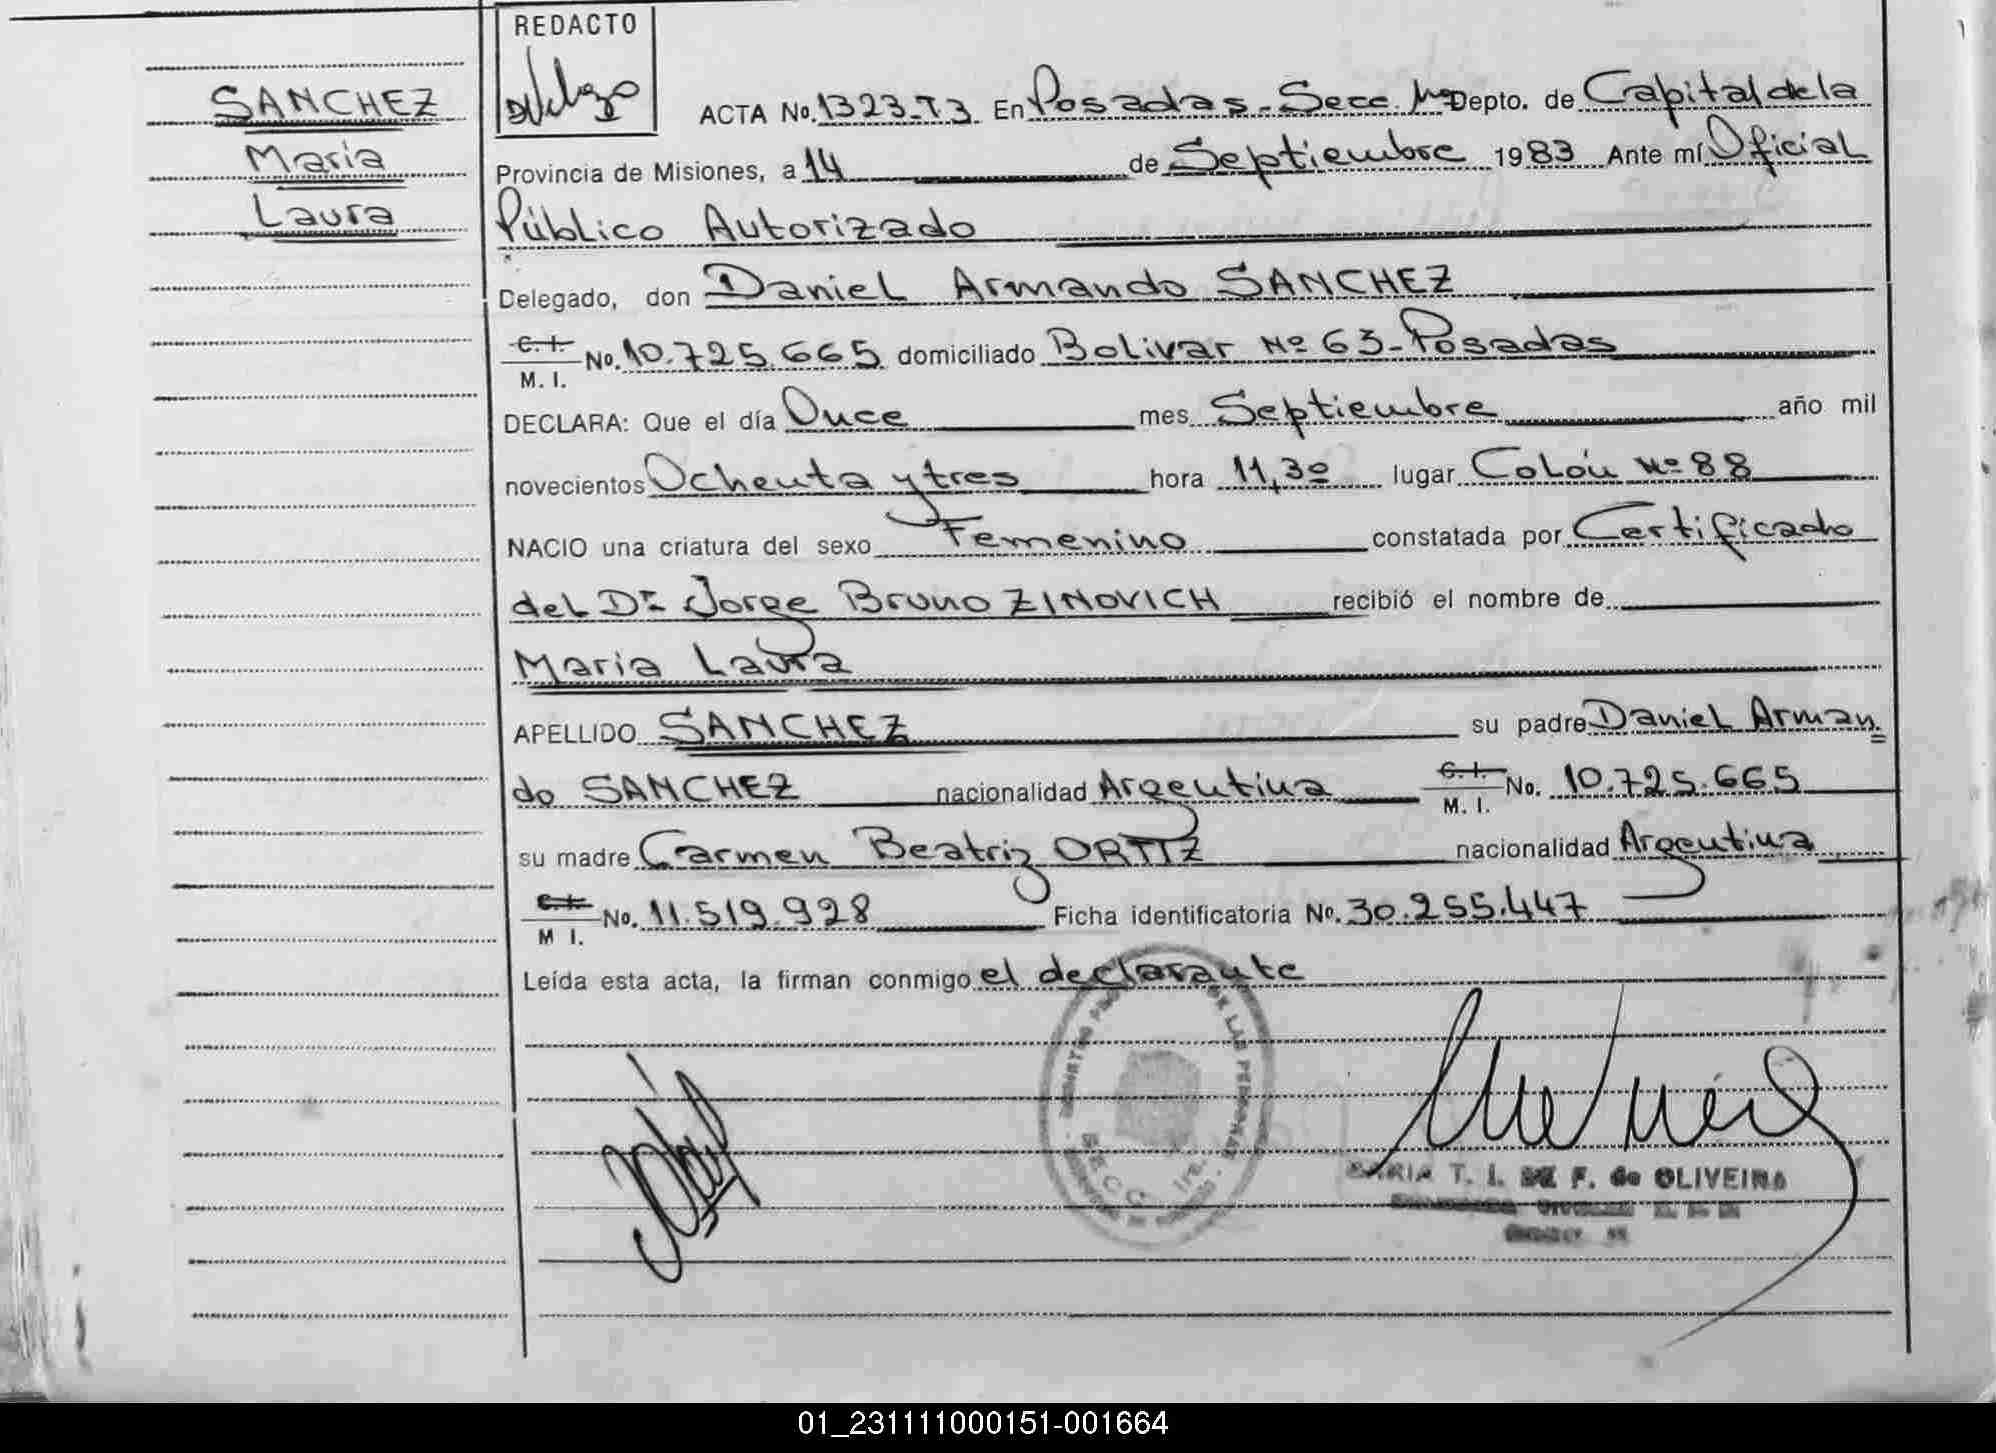 SANCHEZ
María
Laura
REDACTO
ACTA No. 1323-T3 En Posadas-Secc. 1ra Depto. de Capital de la
Provincia de Misiones, a 14 de Septiembre 1983 Ante mí Oficial
Público Autorizado
Delegado, don Daniel Armando SANCHEZ
C. I.
M. I. No. 10.725.665 domiciliado Bolivar Nº 63-Posadas
DECLARA: Que el día Once mes Septiembre año mil
novecientos Ochenta y tres hora 11,30 lugar Colón Nº 88
NACIO una criatura del sexo Femenino constatada por Certificado
del Dr. Jorge Bruno ZINOVICH recibió el nombre de
María Laura
APELLIDO SANCHEZ su padre Daniel Arman=
do SANCHEZ nacionalidad Argentina C. I. M. I. No. 10.725.665
su madre Carmen Beatriz ORTIZ nacionalidad Argentina
C. I. M I. No. 11.519.928 Ficha identificatoria No. 30.255.447
Leída esta acta, la firman conmigo el declarante
DE LAS PERSONAS
SECC. 1ra.
MARIA T. I. DE F. de OLIVEIRA
01_231111000151-001664